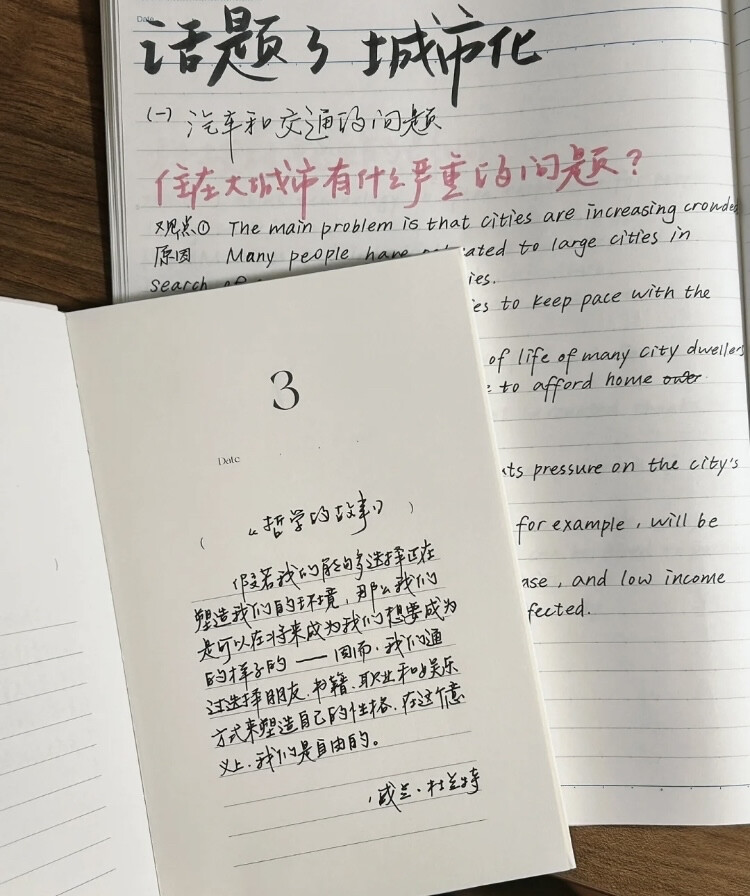 Date
话题3 城市化
(一) 汽车和交通的问题
住在大城市有什么严重的问题?
观点① The main problem is that cities are increasing crowded
原因 Many people have to large cities in
search of ies.
es to keep pace with the
of life of many city dwellers
to afford home
ts pressure on the city's
for example, will be
ase, and low income
fected.
3
Date
(《哲学的故事》)
假若我们能够选择正在
塑造我们的环境,那么我们
是可以在将来成为我们想要成为
的样子的——因而,我们通
过选择朋友、书籍、职业和娱乐
方式来塑造自己的性格,在这个意
义上,我们是自由的。
威兰·杜兰特